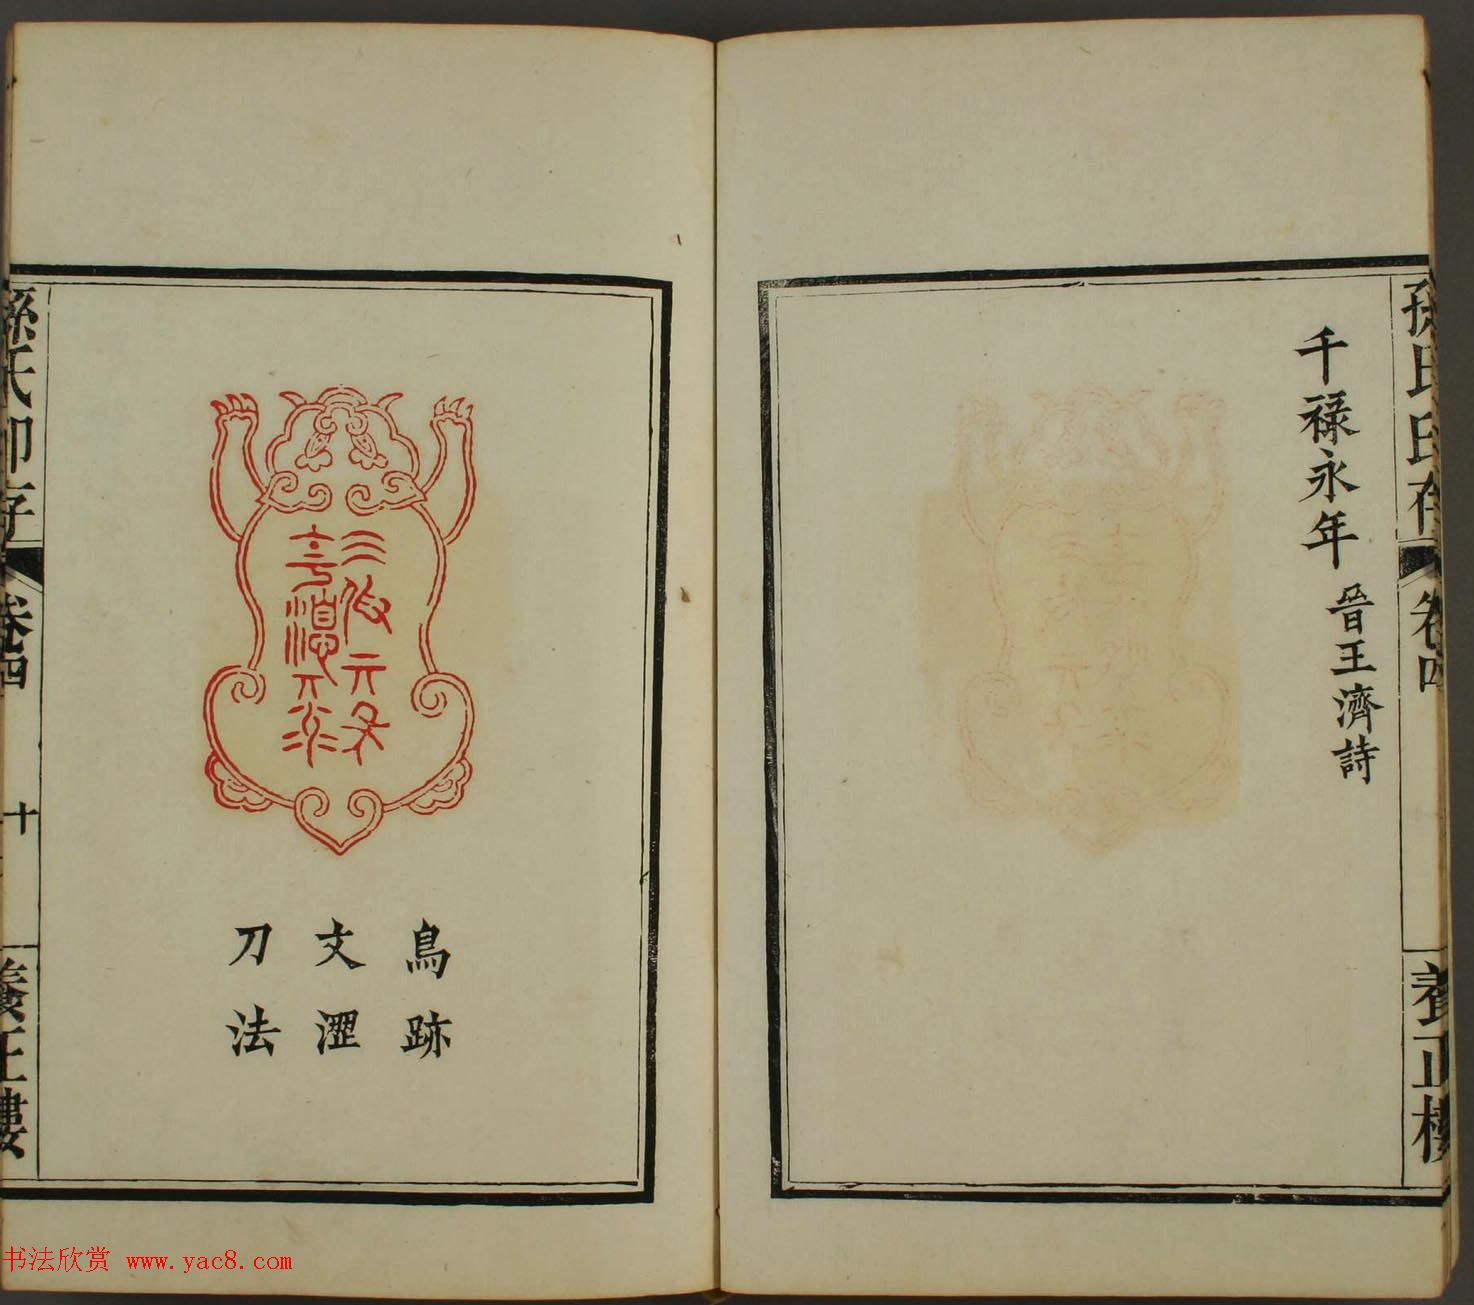 孫氏印存
卷四
養正樓
千祿永年
晉王濟詩
鳥跡
文澀
刀法
孫氏印存
卷四
十
養正樓
书法欣赏 www.yac8.com